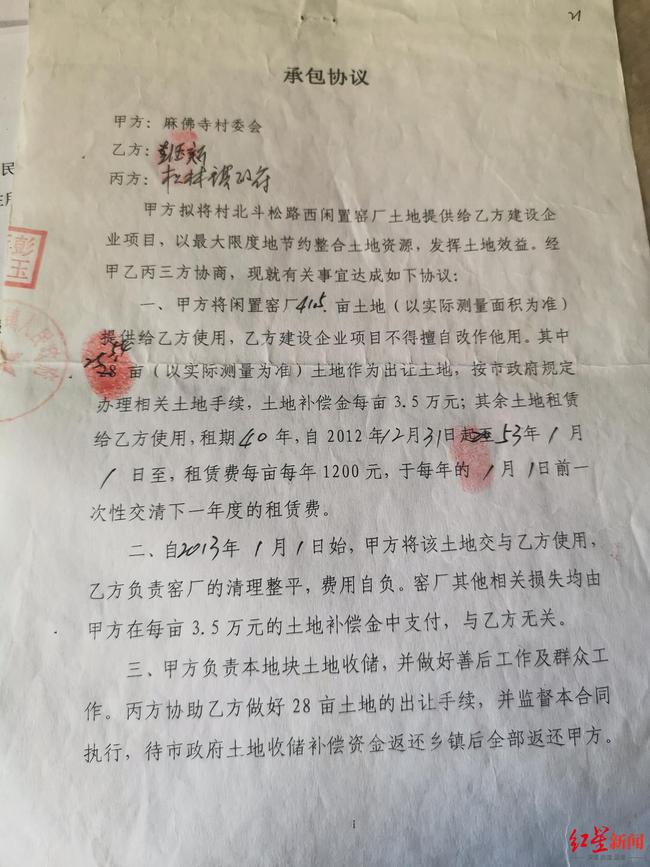 21
承包协议
甲方：麻佛寺村委会
乙方：彭玉新
丙方：松林镇政府
甲方拟将村北斗松路西闲置窑厂土地提供给乙方建设企
业项目，以最大限度地节约整合土地资源，发挥土地效益。经
甲乙丙三方协商，现就有关事宜达成如下协议：
一、甲方将闲置窑厂415.亩土地（以实际测量面积为准）
提供给乙方使用，乙方建设企业项目不得擅自改作他用。其中
25.54
28 亩（以实际测量为准）土地作为出让土地，按市政府规定
办理相关土地手续，土地补偿金每亩 3.5 万元；其余土地租赁
给乙方使用，租期 40 年，自 2012 年 12 月 31 日起至 53 年 1 月
1 日至，租赁费每亩每年 1200 元，于每年的 1 月 1 日前一
次性交清下一年度的租赁费。
二、自 2013 年 1 月 1 日始，甲方将该土地交与乙方使用，
乙方负责窑厂的清理整平，费用自负。窑厂其他相关损失均由
甲方在每亩 3.5 万元的土地补偿金中支付，与乙方无关。
三、甲方负责本地块土地收储，并做好善后工作及群众工
作。丙方协助乙方做好 28 亩土地的出让手续，并监督本合同
执行，待市政府土地收储补偿资金返还乡镇后全部返还甲方。
1
民
彭
玉
红星新闻